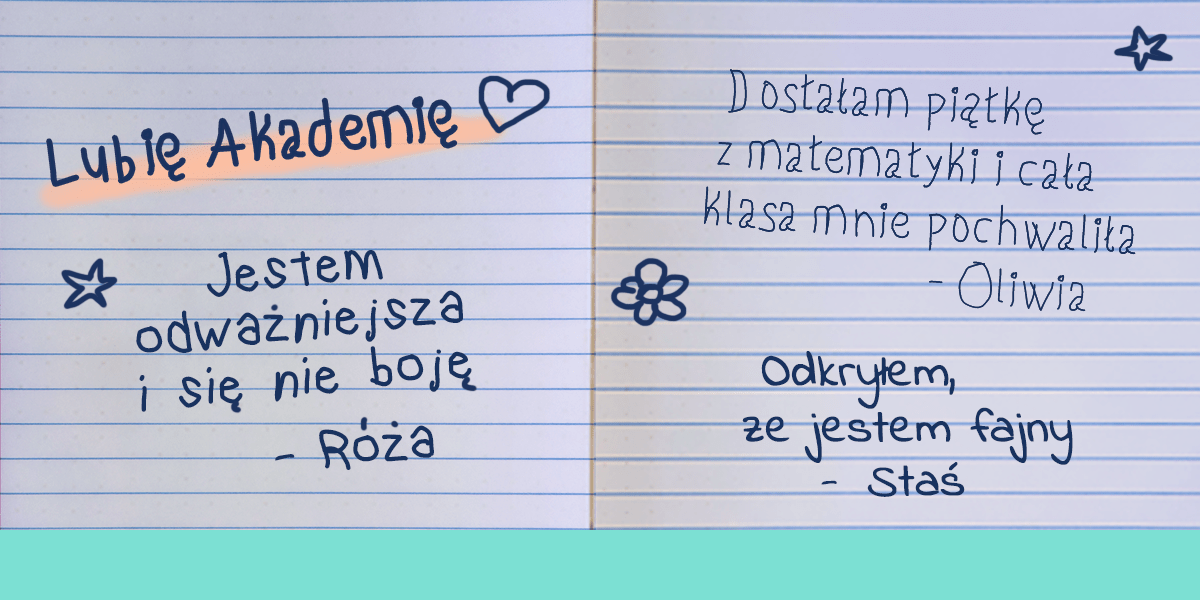 Lubię Akademię
Jestem
odważniejsza
i się nie boję
- Róża
Dostałam piątkę
z matematyki i cała
klasa mnie pochwaliła
- Oliwia
Odkryłem,
że jestem fajny
- Staś